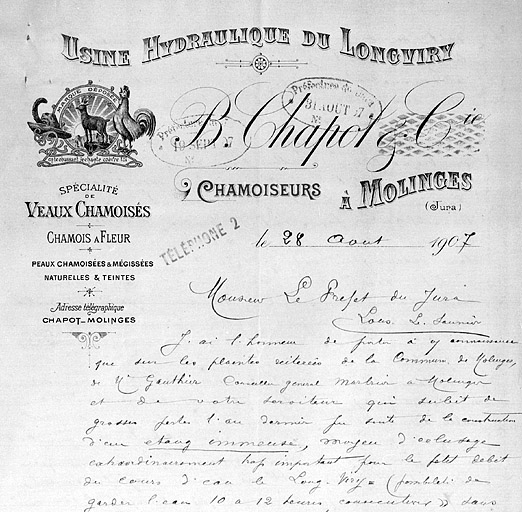 USINE HYDRAULIQUE DU LONGVIRY
MARQUE DÉPOSÉE
B. Chapot & Cie
Préfecture du Jura
31 AOUT 07
N°
CHAMOISEURS
À MOLINGES
(Jura)
SPÉCIALITÉ
DE
VEAUX CHAMOISÉS
CHAMOIS A FLEUR
PEAUX CHAMOISÉES & MÉGISSÉES
NATURELLES & TEINTES
Adresse télégraphique
CHAPOT-MOLINGES
TÉLÉPHONE 2
le 28 Aout 1907
Monsieur Le Prefet du Jura
Lons. L. Saunier
J. ai l'honneur de porter à connaissance
que sur les plaintes réiterées de la Commune de Molinges,
de Mr Gauthier Conseiller general à Molinges
et de votre serviteur qui subit de
grosses pertes l'au dernier suite de la construction
d'un etang immense, moyen d'eclusage
extraordinairement trop important pour le petit debit
du cours d'eau le Long-Viry (possibilité de
garder l'eau 10 a 12 heures consecutives) sans